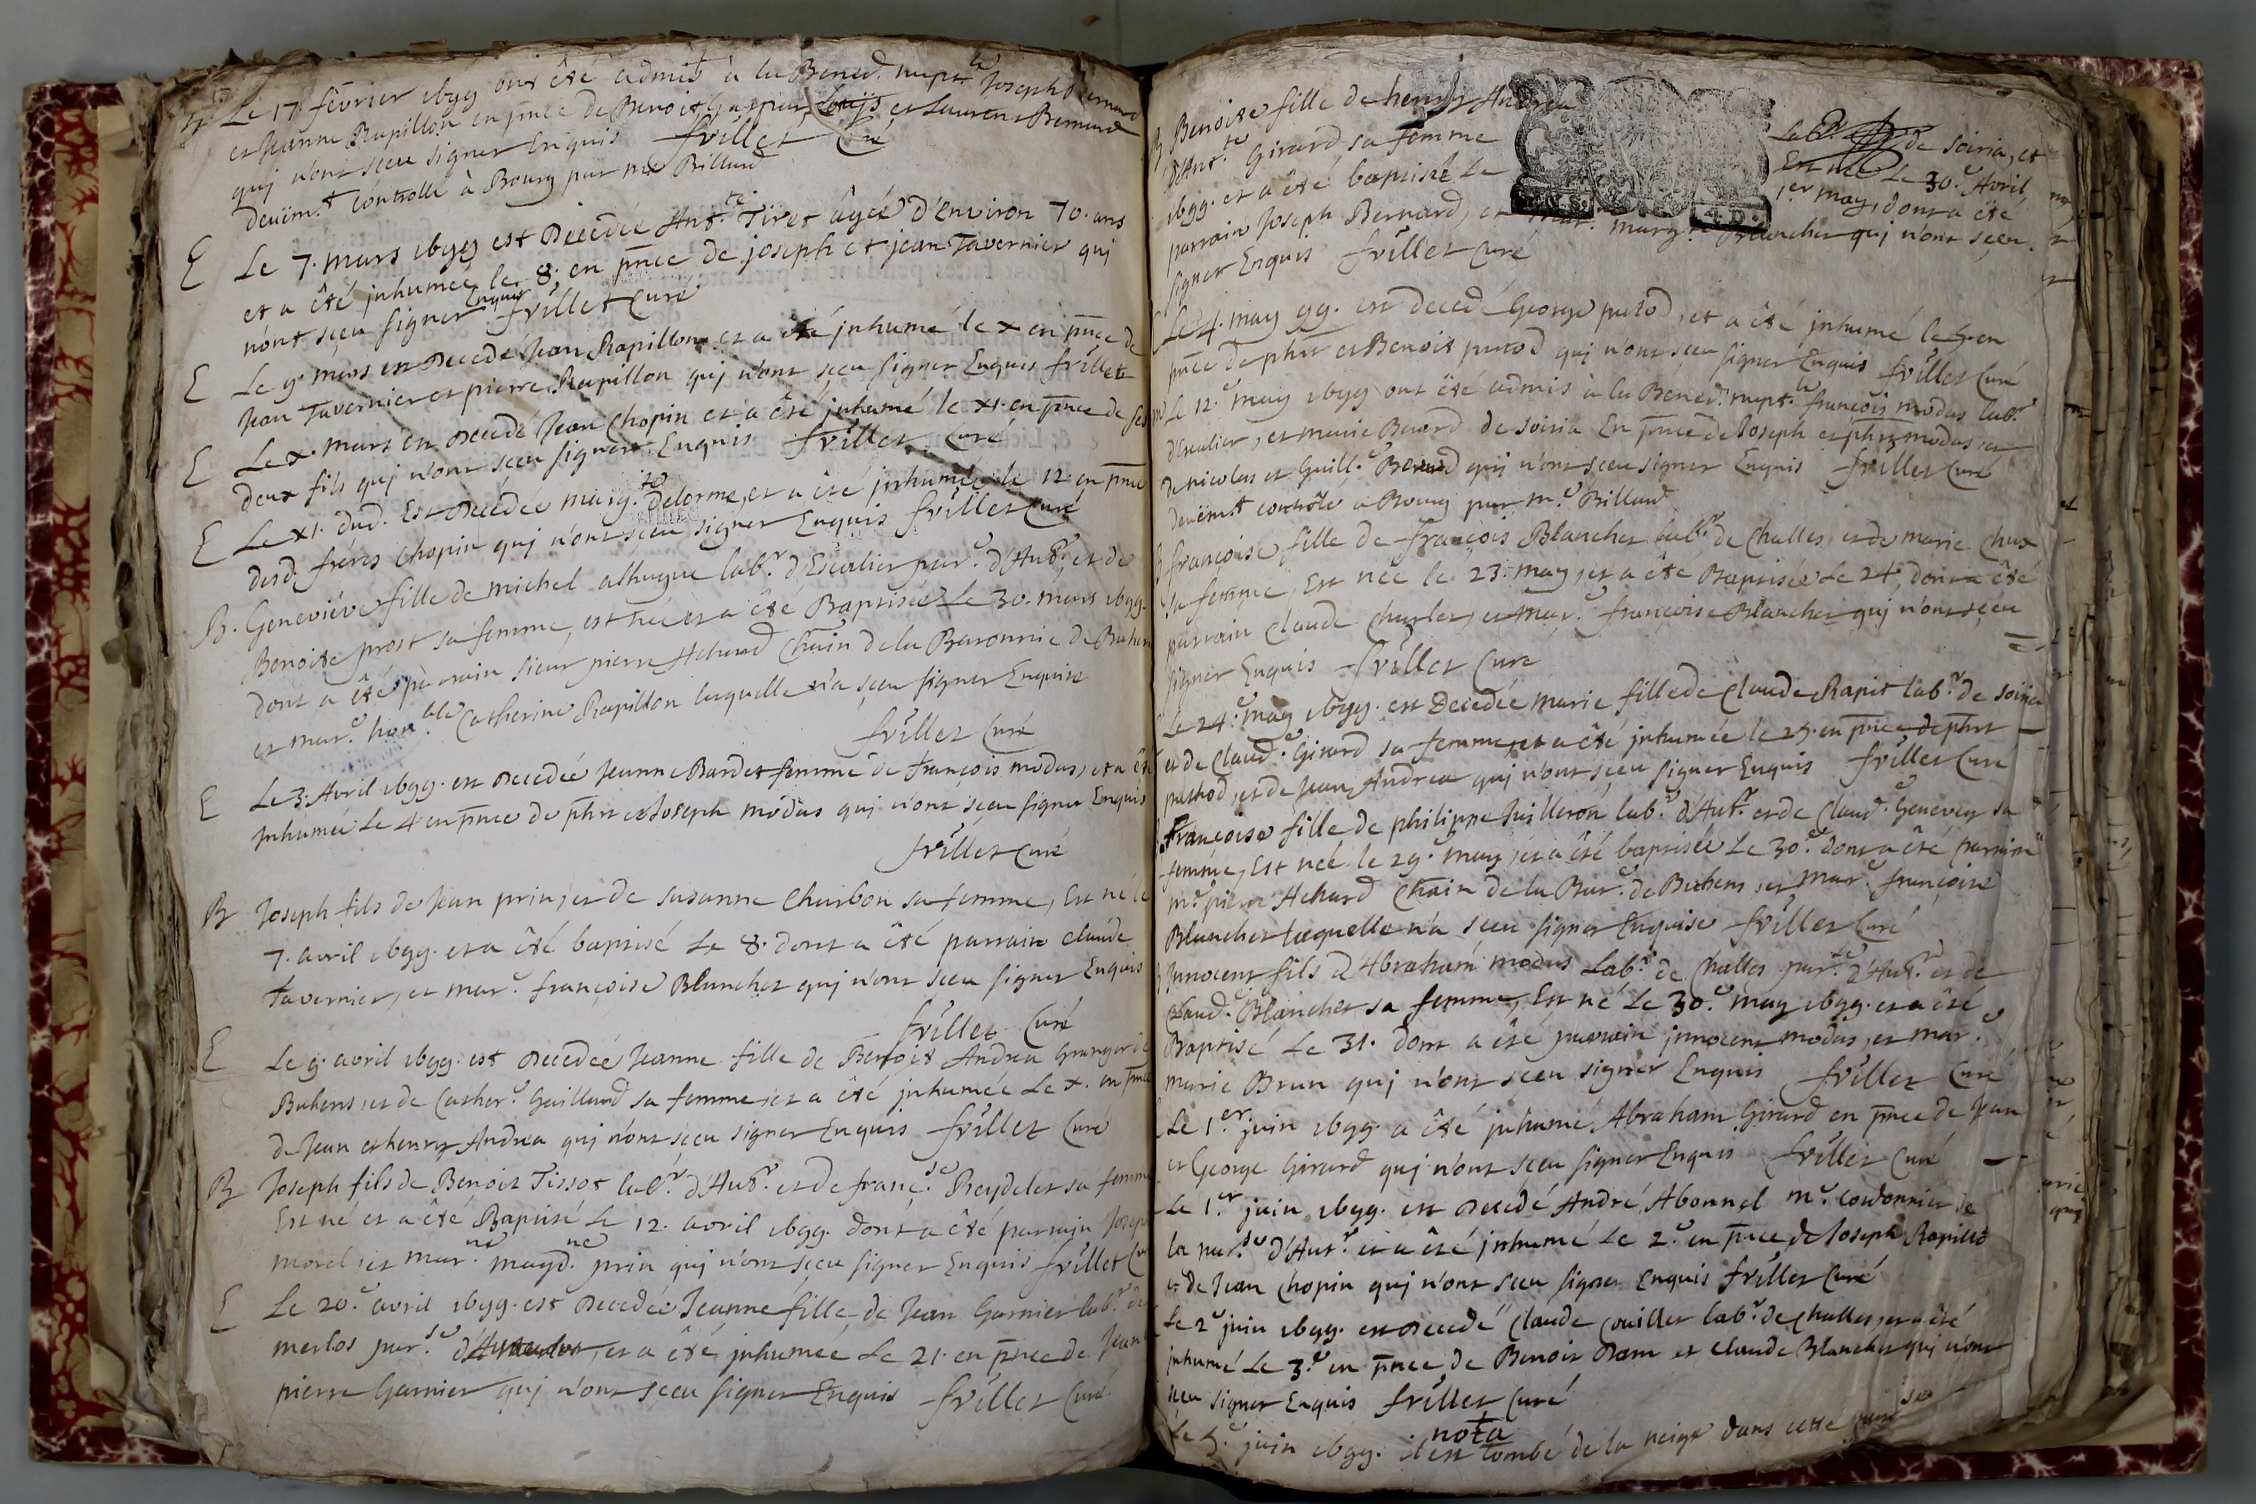 Le 17 février 1699 ont été admis à la Bened. nupt.le Joseph Bernard
et Jeanne Rapillon en pnce de Benoit Gaspar Louys et Laurent Bernard
quj n'ont sceu signer Enquis frillet Curé
deuëm.t contrôllé à Bourg par me Billard
E Le 7. mars 1699 est Decedée Ant.te Tiret âgée d'Environ 70. ans
et a été jnhumée le 8. en pnce de joseph et jean Tavernier quj
n'ont sceu signer Enquis frillet Curé
E Le 9. mars est Decedé Jean Rapillon et a été jnhumé le x en pnce de
Jean Tavernier et pierre Rapillon quj n'ont sceu signer Enquis frillet
E Le x. mars est Decedé Jean Chopin et a été jnhumé le x1. en pnce de ses
deux fils quj n'ont sceu signer Enquis frillet Curé
E Le x1. dud. Est Decedée marg.te delorme, et a été jnhumée le 12. en pnce
desd. fréres Chopin quj n'ont sceu signer Enquis frillet Curé
B. Geneviéve fille de michel alhugue lab.r d'Escalier par.e d'Aut.r, et de
Benoite prost sa femme, est née et a été Baptisée Le 30. mars 1699.
dont a été parrain sieur pierre Achard Chain de la Baronnie de Buhens
et mar.e hon.ble Catherine Rapillon laquelle n'a sceu signer Enquise
frillet Curé
E Le 3. Avril 1699. est Decedée Jeanne Bardet femme de françois modas, et a été
jnhumée Le 4 en pnce de phrt et Joseph modas quj n'ont sceu signer Enquis
frillet Curé
B Joseph fils de Jean prin, et de Susanne Charbon sa femme, Est né le
7. avril 1699. et a été baptisé Le 8. dont a été parrain claude
Tavernier, et mar.e françoise Blanchet quj n'ont sceu signer Enquis
frillet Curé
E Le 9. avril 1699. est Decedée Jeanne fille de Benoit Andrea Granger de
Buhens, et de Cather.e Gaillard sa femme, et a été jnhumée Le x. en pnce
de Jean et henry Andrea quj n'ont sceu signer Enquis frillet Curé
B Joseph fils de Benoit Tissot lab.r d'Aut.r. et de franç.se Reydelet sa femme
Est né et a été Baptisé Le 12. avril 1699. dont a été parrain Joseph
morel, et mar.ne magd.ne prin quj n'ont sceu signer Enquis frillet Curé
E Le 20.e avril 1699. est Decedée Jeanne fille de Jean Garnier lab.r de
merlos par.se, et a été jnhumée Le 21. en pnce de Jean
pierre Garnier quj n'ont sceu signer Enquis frillet Curé
B Benoite fille de henry Andrea lab.r de soiria, et
d'Ant.te Girard sa femme Est née Le 30.e Avril
1699. et a été baptisée Le 1.er may, dont a été
parrain Joseph Bernard, et mar.ne marg.te Blanchet quj n'ont sceu
signer Enquis frillet Curé
Le 4. may 99. est decedé George putod, et a été jnhumé le 5. en
pnce de phrt et Benoit putod quj n'ont sceu signer Enquis frillet Curé
Le 12.e may 1699 ont été admis à la Bened. nupt.le françois modas lab.r
d'Escalier, et marie Bavard de soiria En pnce de Joseph et phrt modas, et
de nicolas et Guill.e quj n'ont sceu signer Enquis frillet Curé
deuëm.t contrôlé a Bourg par m.e Billard
françoise fille de françois Blanchet lab.r de Challes, et de marie Chux
sa femme, Est née le 23. may, et a été Baptisée Le 24. dont a été
parrain Claude Charles, et mar.e francoise Blanchet quj n'ont sceu
signer Enquis frillet Curé
Le 24.e may 1699. est Decedée Marie fille de Claude Rapit lab.r de soiria
et de Claud.e Girard sa femme, et a été jnhumée le 25. en pnce de phrt
puthod, et de Jean Andrea quj n'ont sceu signer Enquis frillet Curé
Françoise fille de philippe Juilleron lab.r d'Aut.r. et de Claud.e Genevey sa
femme, Est née le 29. may, et a été baptisée Le 30.e dont a été parrain
m.e pierre Achard Chain de la Bar.e de Buhens, et mar.e françoise
Blanchet laquelle n'a sceu signer Enquise frillet Curé
Jnnocent fils d'Abraham modas Lab.r de Challes par.se d'Aut.r et de
Claud.e Blanchet sa femme, Est né Le 30.e may 1699. et a été
Baptisé Le 31. dont a été parrain jnnocent modas, et mar.e
marie Brun quj n'ont sceu signer Enquis frillet Curé
Le 1.er juin 1699. a été jnhumé Abraham Girard en pnce de Jean
et George Girard quj n'ont sceu signer Enquis frillet Curé
Le 1.er juin 1699. est Decedé André Abonnel m.e cordonnier de
la par.se d'Aut.r et a été jnhumé Le 2.e en pnce de Joseph Rapillod
et de Jean Chopin quj n'ont sceu signer Enquis frillet Curé
Le 2.e juin 1699. est Decedé Claude Cuillet lab.r de Challes, et a été
jnhumé Le 3.e en pnce de Benoit Dam et Claude Blanchet quj n'ont
sceu signer Enquis frillet Curé
nota
Le 5.e juin 1699. il est tombé de la neige dans cette parr.se